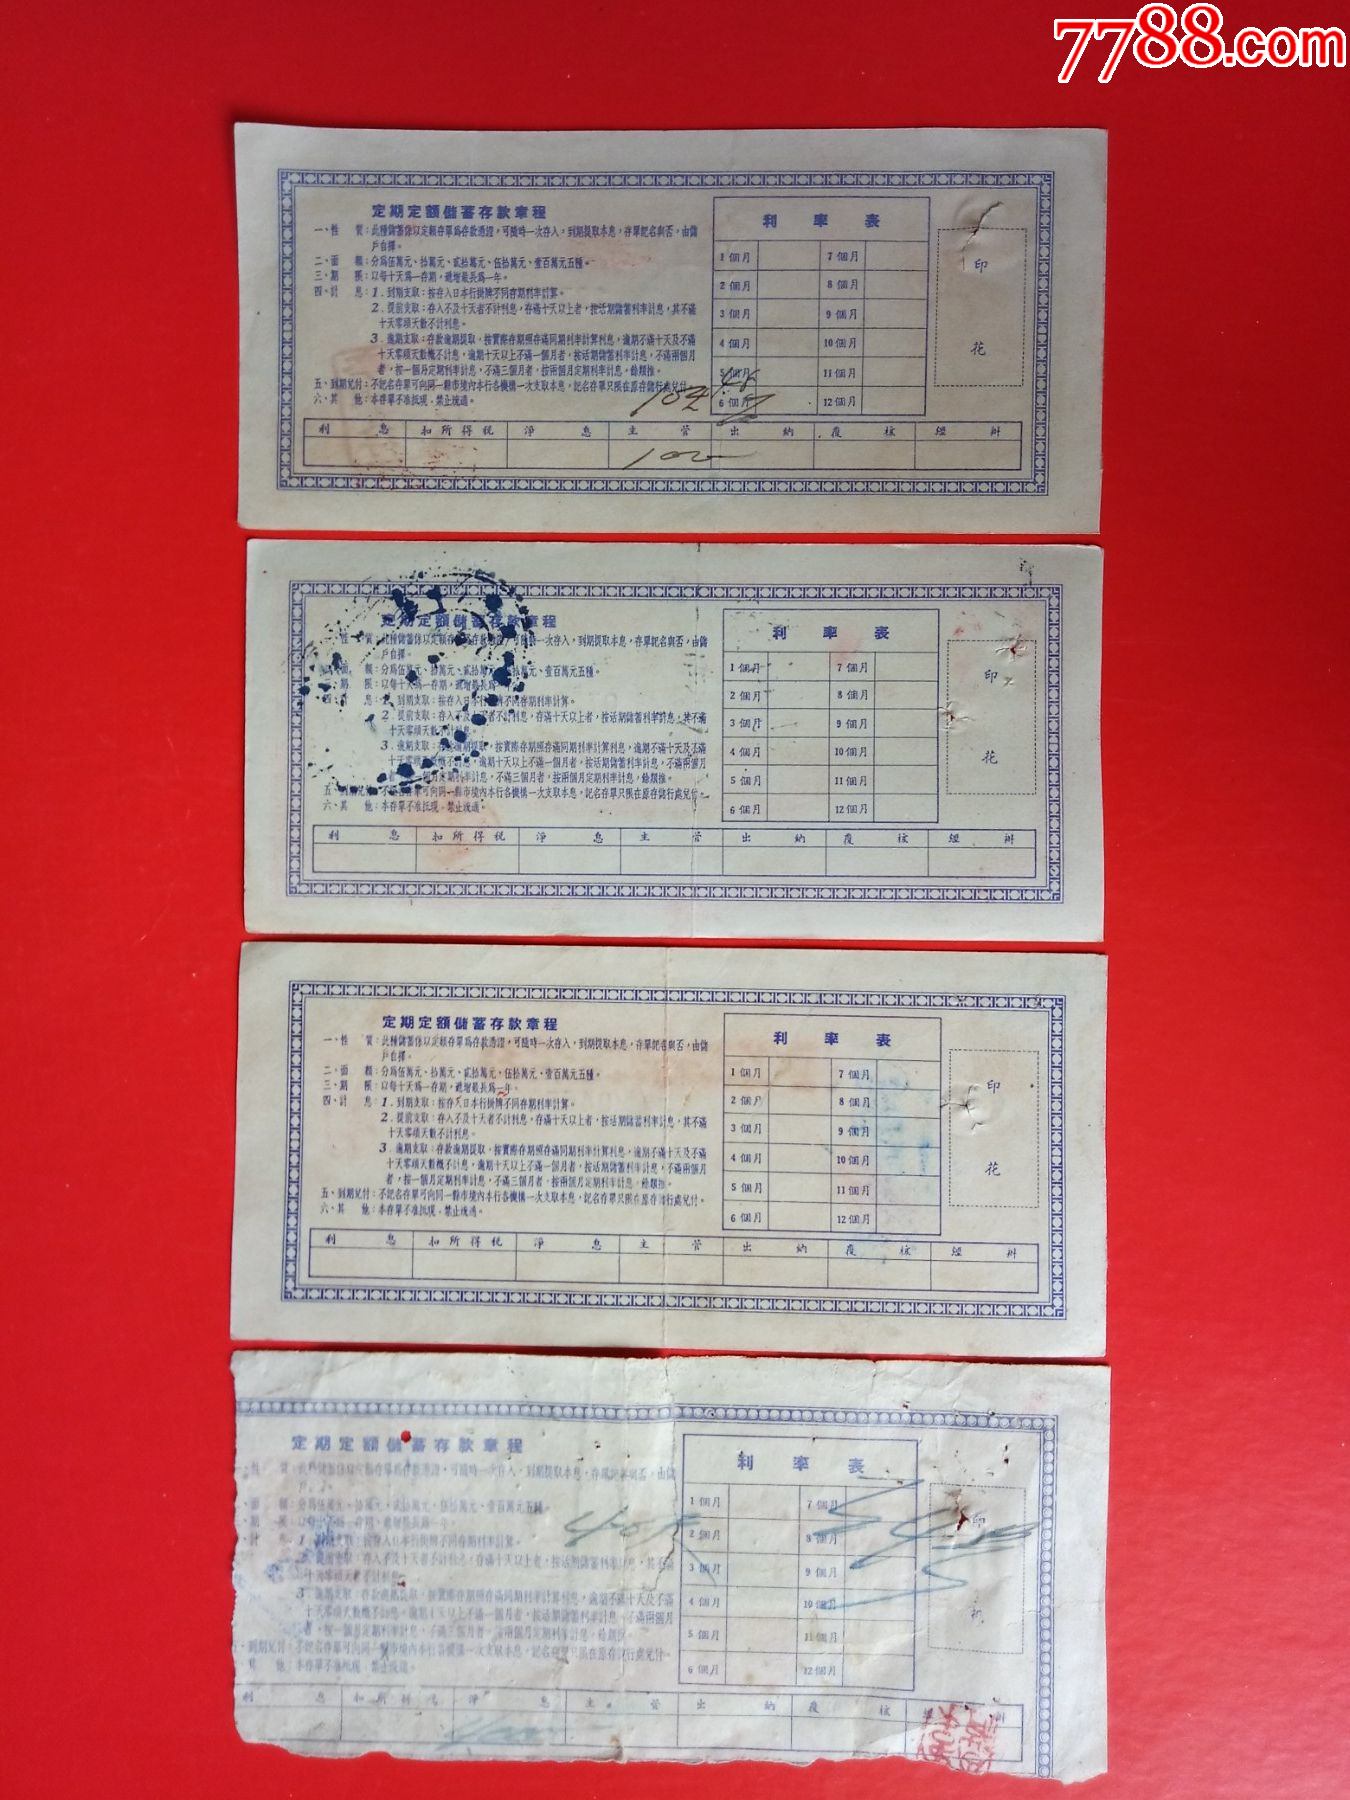 7788.com
定期定額儲蓄存款章程
一、性　質：此種儲蓄係以定額存單為存款憑證，可隨時一次存入，到期提取本息，存單記名與否，由儲
戶自擇。
二、面　額：分為伍萬元、拾萬元、貳拾萬元、伍拾萬元、壹百萬元五種。
三、期　限：以每十天為一存期，遞增最長為一年。
四、計　息：1．到期支取：按存入日本行掛牌不同存期利率計算。
2．提前支取：存入不及十天者不計利息，存滿十天以上者，按活期儲蓄利率計息，其不滿
十天零頭天數不計利息。
3．逾期支取：存款逾期提取，按實際存期照存滿同期利率計算利息，逾期不滿十天及不滿
十天零頭天數概不計息，逾期十天以上不滿一個月者，按活期儲蓄利率計息，不滿兩個月
者，按一個月定期利率計息，不滿三個月者，按兩個月定期利率計息，餘類推。
五、到期兌付：不記名存單可向同一縣市境內本行各機構一次支取本息，記名存單只限在原存儲行處兌付。
六、其　他：本存單不准抵現．禁止流通。
利率表
1個月　7個月
2個月　8個月
3個月　9個月
4個月　10個月
5個月　11個月
6個月　12個月
印
花
利息　扣所得稅　淨息　主管　出納　覆核　經辦
100
定期定額儲蓄存款章程
性　質：此種儲蓄係以定額存單為存款憑證，可隨時一次存入，到期提取本息，存單記名與否，由儲
戶自擇。
面　額：分為伍萬元、拾萬元、貳拾萬元、伍拾萬元、壹百萬元五種。
期　限：以每十天為一存期，遞增最長為一年。
四、計　息：1．到期支取：按存入日本行掛牌不同存期利率計算。
2．提前支取：存入不及十天者不計利息，存滿十天以上者，按活期儲蓄利率計息，其不滿
十天零頭天數不計利息。
3．逾期支取：存款逾期提取，按實際存期照存滿同期利率計算利息，逾期不滿十天及不滿
十天零頭天數概不計息，逾期十天以上不滿一個月者，按活期儲蓄利率計息，不滿兩個月
者，按一個月定期利率計息，不滿三個月者，按兩個月定期利率計息，餘類推。
五、到期兌付：不記名存單可向同一縣市境內本行各機構一次支取本息，記名存單只限在原存儲行處兌付。
六、其　他：本存單不准抵現．禁止流通。
利率表
1個月　7個月
2個月　8個月
3個月　9個月
4個月　10個月
5個月　11個月
6個月　12個月
印
花
利息　扣所得稅　淨息　主管　出納　覆核　經辦
定期定額儲蓄存款章程
一、性　質：此種儲蓄係以定額存單為存款憑證，可隨時一次存入，到期提取本息，存單記名與否，由儲
戶自擇。
二、面　額：分為伍萬元、拾萬元、貳拾萬元，伍拾萬元、壹百萬元五種。
三、期　限：以每十天為一存期，遞增最長為一年。
四、計　息：1．到期支取：按存入日本行掛牌不同存期利率計算。
2．提前支取：存入不及十天者不計利息，存滿十天以上者，按活期儲蓄利率計息，其不滿
十天零頭天數不計利息。
3．逾期支取：存款逾期提取，按實際存期照存滿同期利率計算利息，逾期不滿十天及不滿
十天零頭天數概不計息，逾期十天以上不滿一個月者，按活期儲蓄利率計息，不滿兩個月
者，按一個月定期利率計息，不滿三個月者，按兩個月定期利率計息，餘類推。
五、到期兌付：不記名存單可向同一縣市境內本行各機構一次支取本息，記名存單只限在原存儲行處兌付。
六、其　他：本存單不准抵現．禁止流通。
利率表
1個月　7個月
2個月　8個月
3個月　9個月
4個月　10個月
5個月　11個月
6個月　12個月
印
花
利息　扣所得稅　淨息　主管　出納　覆核　經辦
定期定額儲蓄存款章程
性　質：此種儲蓄係以定額存單為存款憑證，可隨時一次存入，到期提取本息，存單記名與否，由儲
戶
面　額：分為伍萬元、拾萬元、貳拾萬元，伍拾萬元、壹百萬元五種。
期　限：以每十天為一存期，遞增最長為一年。
計　息：1．到期支取：按存入日本行掛牌不同存期利率計算。
2．提前支取：存入不及十天者不計利息，存滿十天以上者，按活期儲蓄利率計息，其不滿
十天零頭天數不計利息。
3．逾期支取：存款逾期提取，按實際存期照存滿同期利率計算利息，逾期不滿十天及不滿
十天零頭天數概不計息，逾期十天以上不滿一個月者，按活期儲蓄利率計息，不滿兩個月
者，按一個月定期利率計息，不滿三個月者，按兩個月定期利率計息，餘類推。
五、到期兌付：不記名存單可向同一縣市境內本行各機構一次支取本息，記名存單只限在原存儲行處兌付。
其　他：本存單不准抵現．禁止流通。
利率表
1個月　7個月
2個月　8個月
3個月　9個月
4個月　10個月
5個月　11個月
6個月　12個月
印
利息　扣所得稅　淨息　主管　出納　覆核　經辦